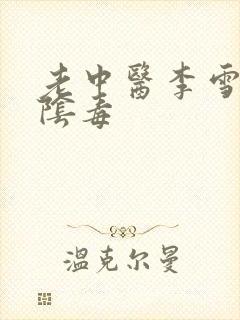 老中醫李雪
陰毒
溫克尔曼